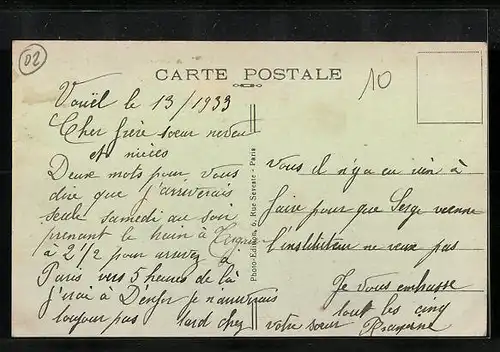 02
CARTE POSTALE
10
Vouël le 13/1933
Cher frère soeur neveu
et nièces
Deux mots pour vous
dire que j'arriverais
seule samedi au soir
prenant le train à
à 2 1/2 pour arriver à
Paris vers 5 heures de là
j'irai à Denfer je n'arriverais
toujour pas tard chez
Photo-Edition, 6, Rue Serveste - Paris
vous il n'y a eu rien à
faire pour que Serge vienne
l'instituteur ne veux pas
Je vous embrasse
tout les cinq
votre soeur